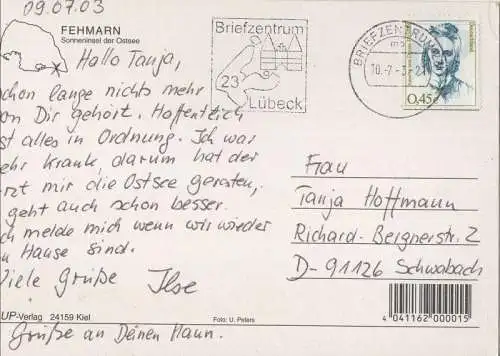 09.07.03
FEHMARN
Sonneninsel der Ostsee
Hallo Tanja,
schon lange nichts mehr
von Dir gehört. Hoffentlich
ist alles in Ordnung. Ich war
sehr krank, darum hat der
Arzt mir die Ostsee geraten,
geht auch schon besser.
Ich melde mich wenn wir wieder
zu Hause sind.
Viele Grüße Ilse
UP-Verlag 24159 Kiel
Grüße an Deinen Mann.
Foto: U. Peters
Briefzentrum
23
Lübeck
BRIEFZENTRUM
10.-7-3-21
Deutschland
0,45€
Frau
Tanja Hoffmann
Richard-Bergnerstr. 2
D-91126 Schwabach
4 041162 000015